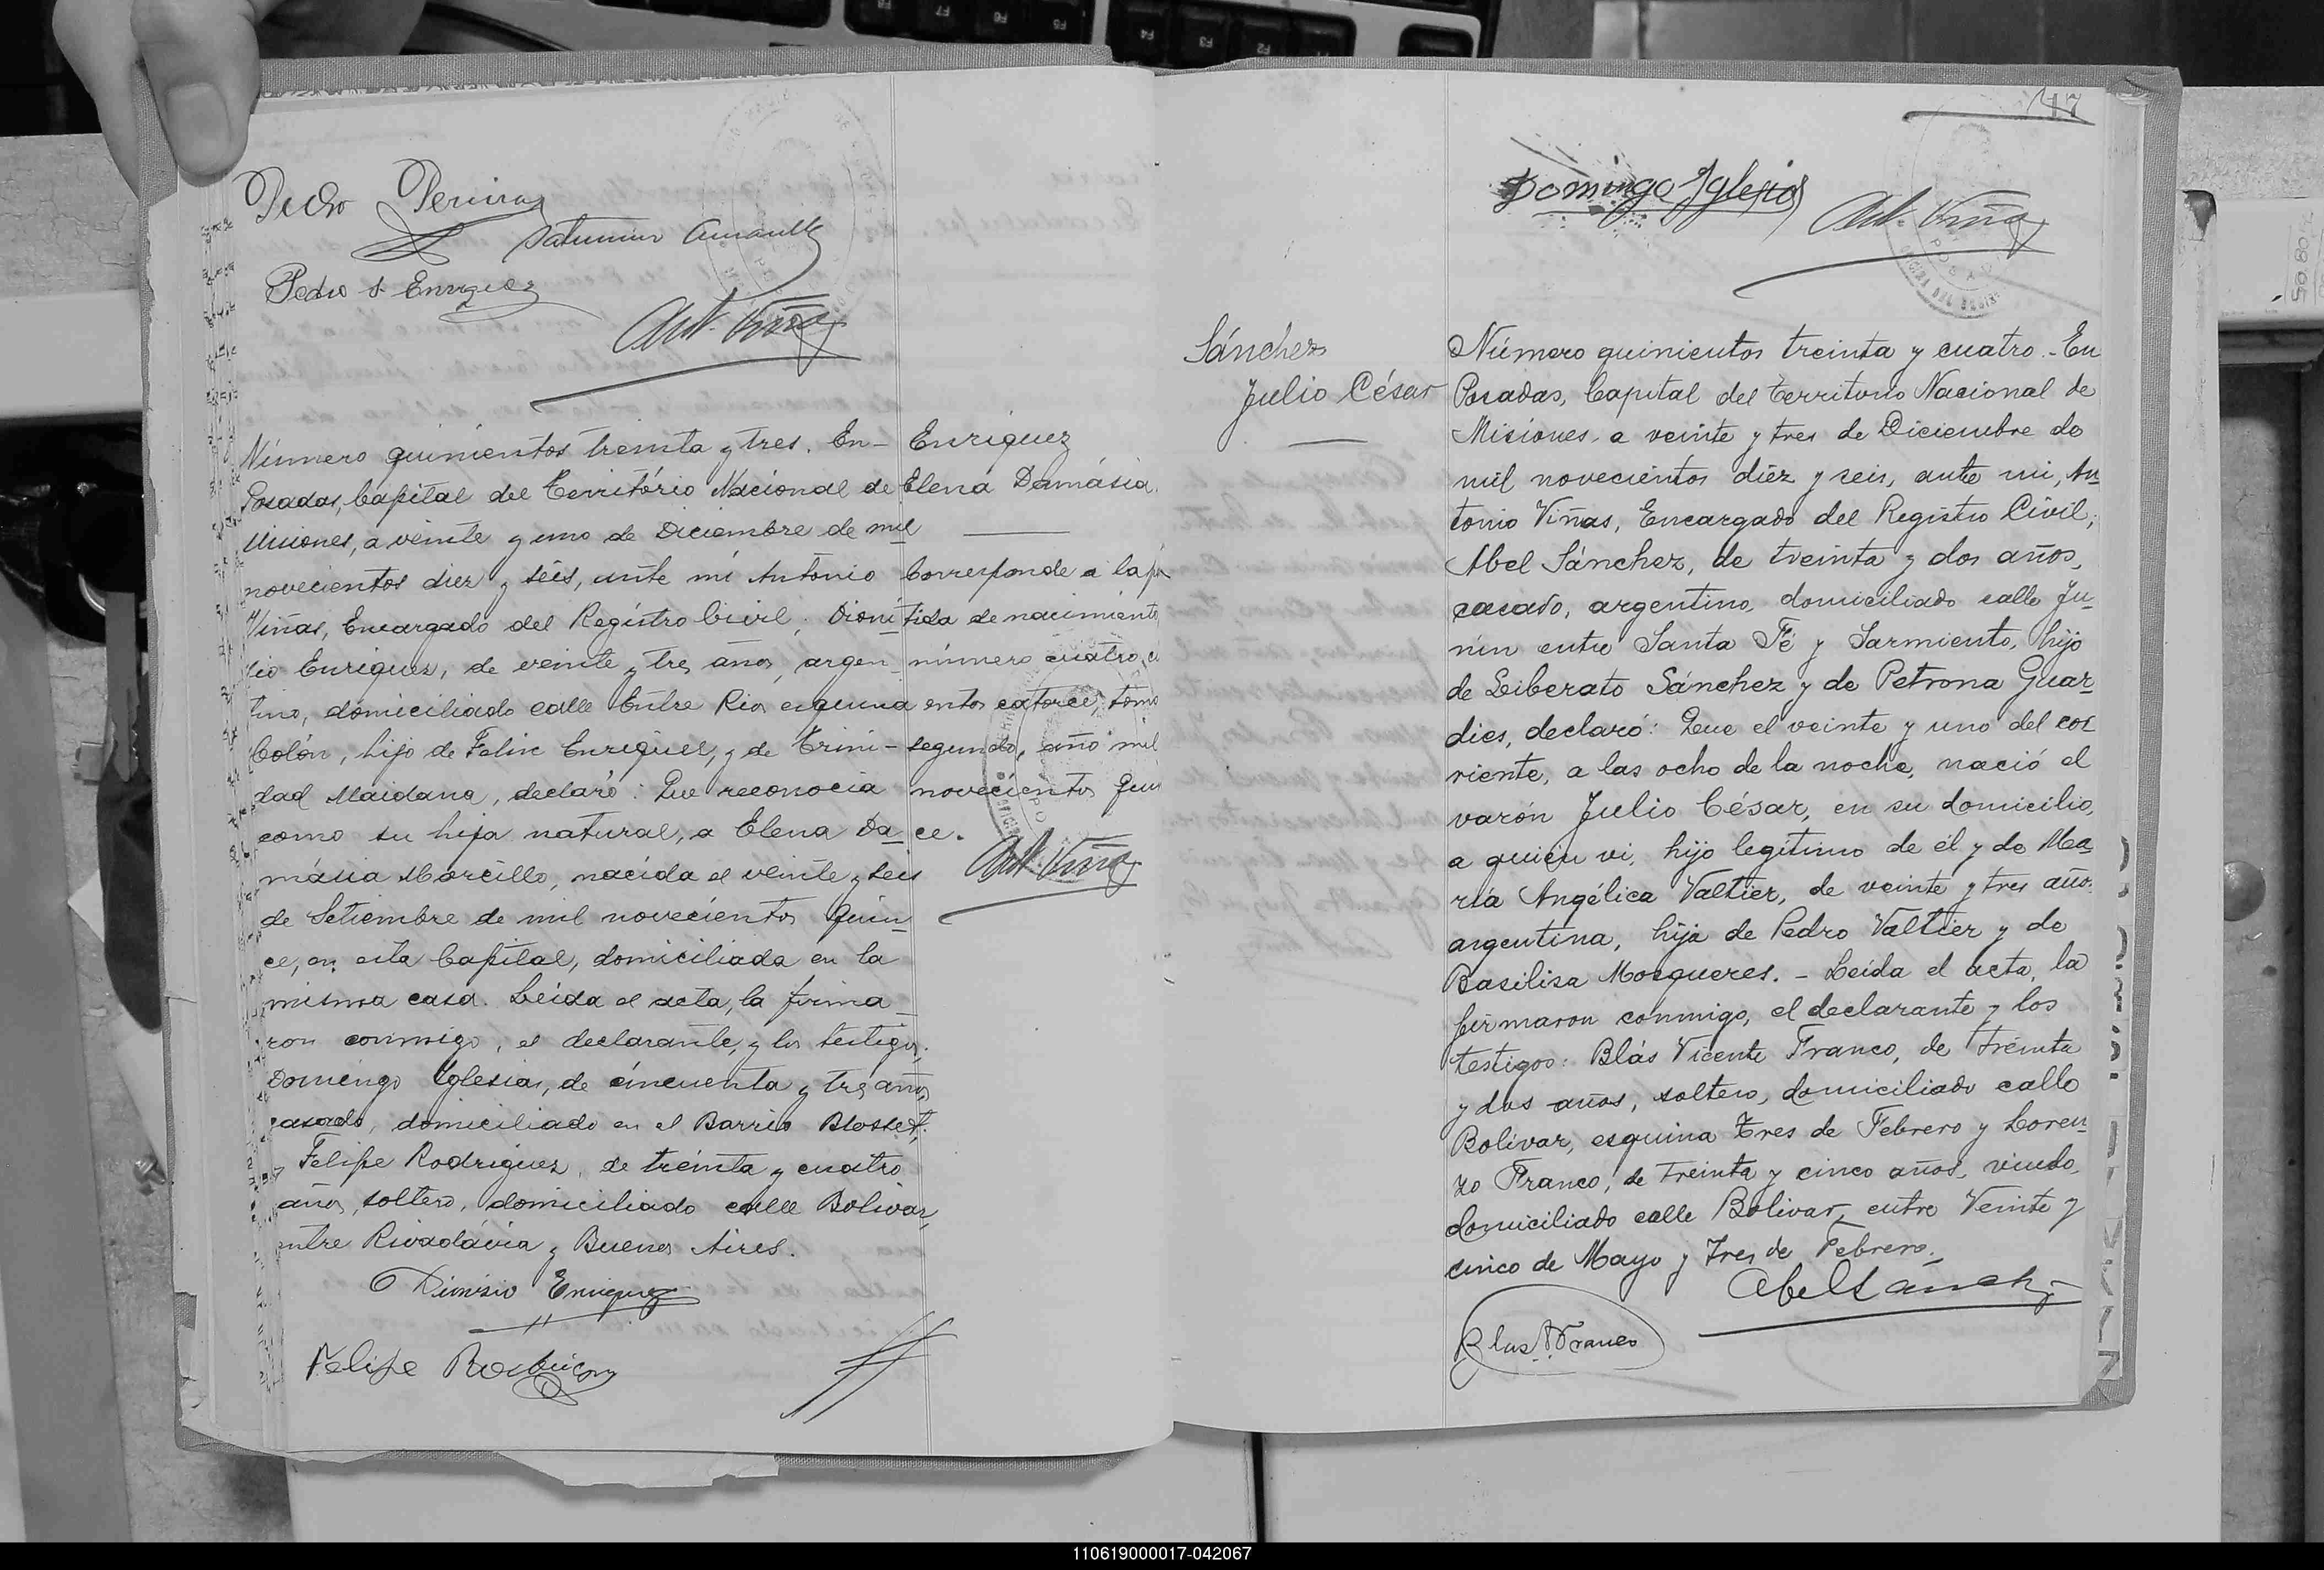 Pedro Pereira
Saturnino
Pedro S. Enriquez
Ant. Viñas
Número quinientos treinta y tres. En
Posadas, Capital del Território Nacional de
Misiones, a veinte y uno de Diciembre de mil
novecientos diez y séis, ante mí Antonio
Viñas, Encargado del Registro Civil; Dioni
cio Enriquez, de veinte y tres años, argen
tino, domiciliado calle Entre Rios esquina
Colón, hijo de Felix Enriquez, y de Trini-
dad Maidana, declaró: Que reconocia
como su hija natural, a Elena Da
másia Morcillo, nacida el veinte y seis
de Setiembre de mil novecientos quin
ce, en esta Capital, domiciliada en la
misma casa. Leída el acta, la firma
ron conmigo, el declarante, y los testigos.
Domingo Yglesias, de cincuenta y tres años,
casado, domiciliado en el Barrio Blosset,
y Felipe Rodriguez, de treinta y cuatro
años, soltero, domiciliado calle Bolivar,
entre Rivadávia y Buenos Aires.
Dionisio Enriquez
Felipe Rodriguez
Enriquez
Elena Damásia.
Corresponde a la par
tida de nacimiento
número cuatro, ci
entos catorce, tomo
segundo, año mil
novecientos quin
ce.
Ant. Viñas
17
Domingo Yglesias
Ant. Viñas
Sánchez
Julio César
Número quinientos treinta y cuatro.- En
Posadas, Capital del Territorio Nacional de
Misiones, a veinte y tres de Diciembre de
mil novecientos diez y seis, ante mi, An
tonio Viñas, Encargado del Registro Civil;
Abel Sánchez, de treinta y dos años,
casado, argentino, domiciliado calle Ju-
nin entre Santa Fé y Sarmiento, hijo
de Liberato Sánchez y de Petrona Guar
dies, declaró: Que el veinte y uno del cor
riente, a las ocho de la noche, nació el
varón Julio César, en su domicilio,
a quien vi, hijo legítimo de él y de Ma
ría Angélica Valtier, de veinte y tres años
argentina, hija de Pedro Valtier y de
Basilisa Mosqueres. - Leída el acta, la
firmaron conmigo, el declarante y los
testigos: Blás Vicente Franco, de treinta
y dos años, soltero, domiciliado calle
Bolívar, esquina Tres de Febrero y Loren
zo Franco, de treinta y cinco años, viudo,
domiciliado calle Bolivar, entre Veinte y
cinco de Mayo y Tres de Febrero.
Abel Sánchez
Blas V. Franco
110619000017-042067